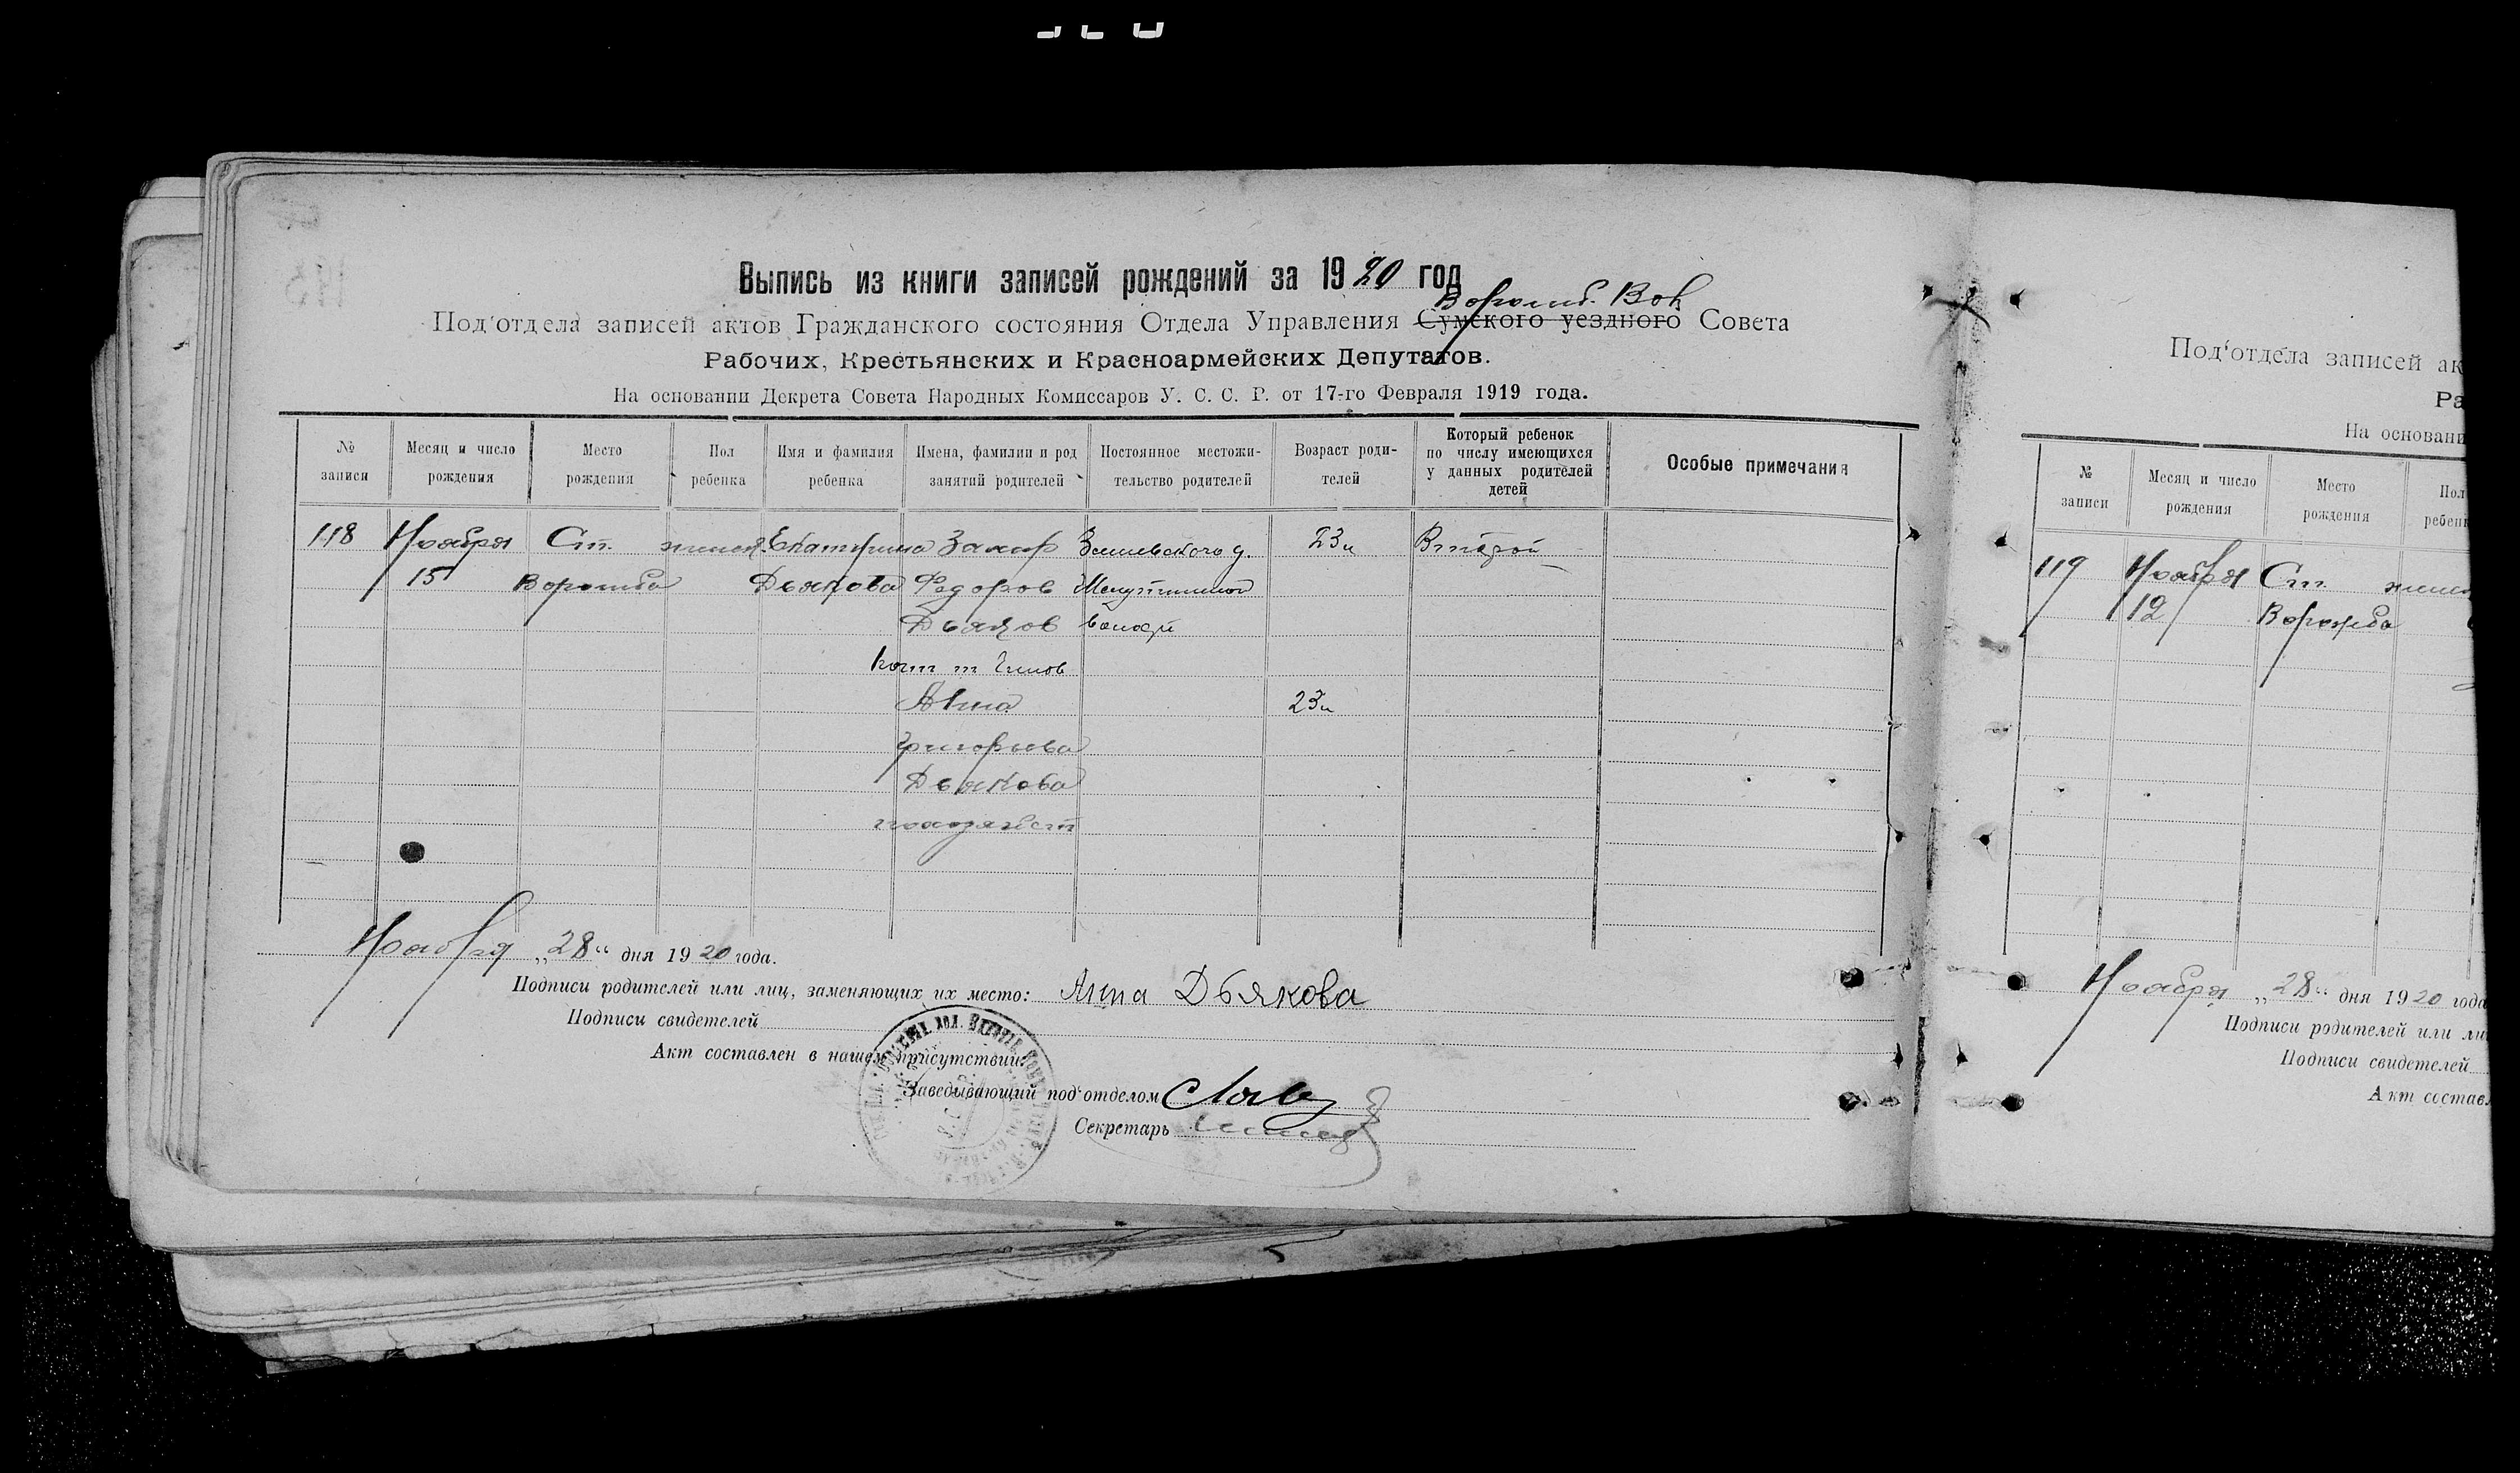 Выпись из книги записей рождений за 1920 год
Ворожб. Вол
Под'отдела записей актов Гражданского состояния Отдела Управления Сумского уездного Совета
Рабочих, Крестьянских и Красноармейских Депутатов.
На основании Декрета Совета Народных Комиссаров У. С. С. Р. от 17-го Февраля 1919 года.
№ записи
Месяц и число рождения
Место рождения
Пол ребенка
Имя и фамилия ребенка
Имена, фамилии и род занятий родителей
Постоянное местожительство родителей
Возраст родителей
Который ребенок по числу имеющихся у данных родителей детей
Особые примечания
118 Ноября Ст. женск. Екатерина Захар 23 Второй
15 Ворожба Дьякова Федоров
Дьяков
Анна 23
Григорьева
Дьякова
Ноября „28“ дня 1920 года.
Подписи родителей или лиц, заменяющих их место: Анна Дьякова
Подписи свидетелей
Акт составлен в нашем присутствии:
Заведывающий под'отделом
Секретарь
Под'отдела записей ак
Ра
На основани
№ записи
Месяц и число рождения
Место рождения
Пол ребен
119 Ноября Ст. женск
12 Ворожба
Ноября „28“ дня 1920 года
Подписи родителей или ли
Подписи свидетелей
Акт состав